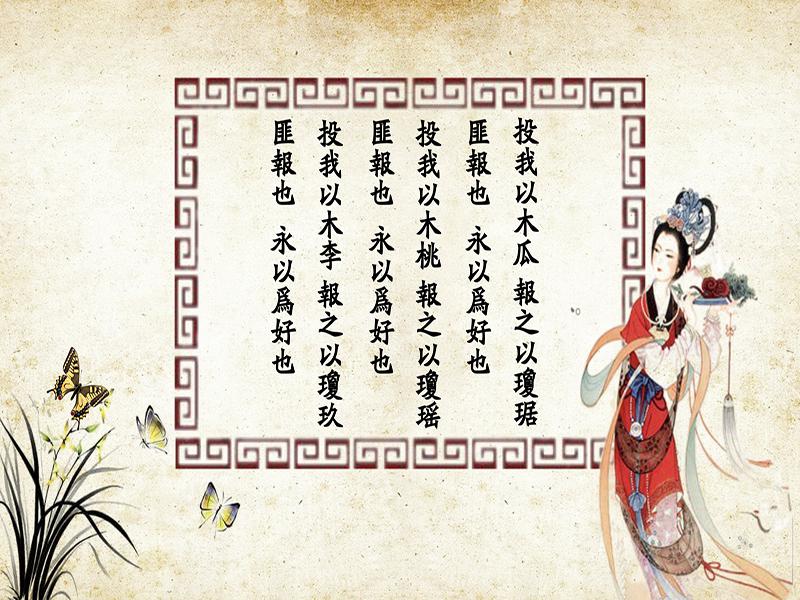 投我以木瓜 報之以瓊琚
匪報也 永以爲好也
投我以木桃 報之以瓊瑶
匪報也 永以爲好也
投我以木李 報之以瓊玖
匪報也 永以爲好也